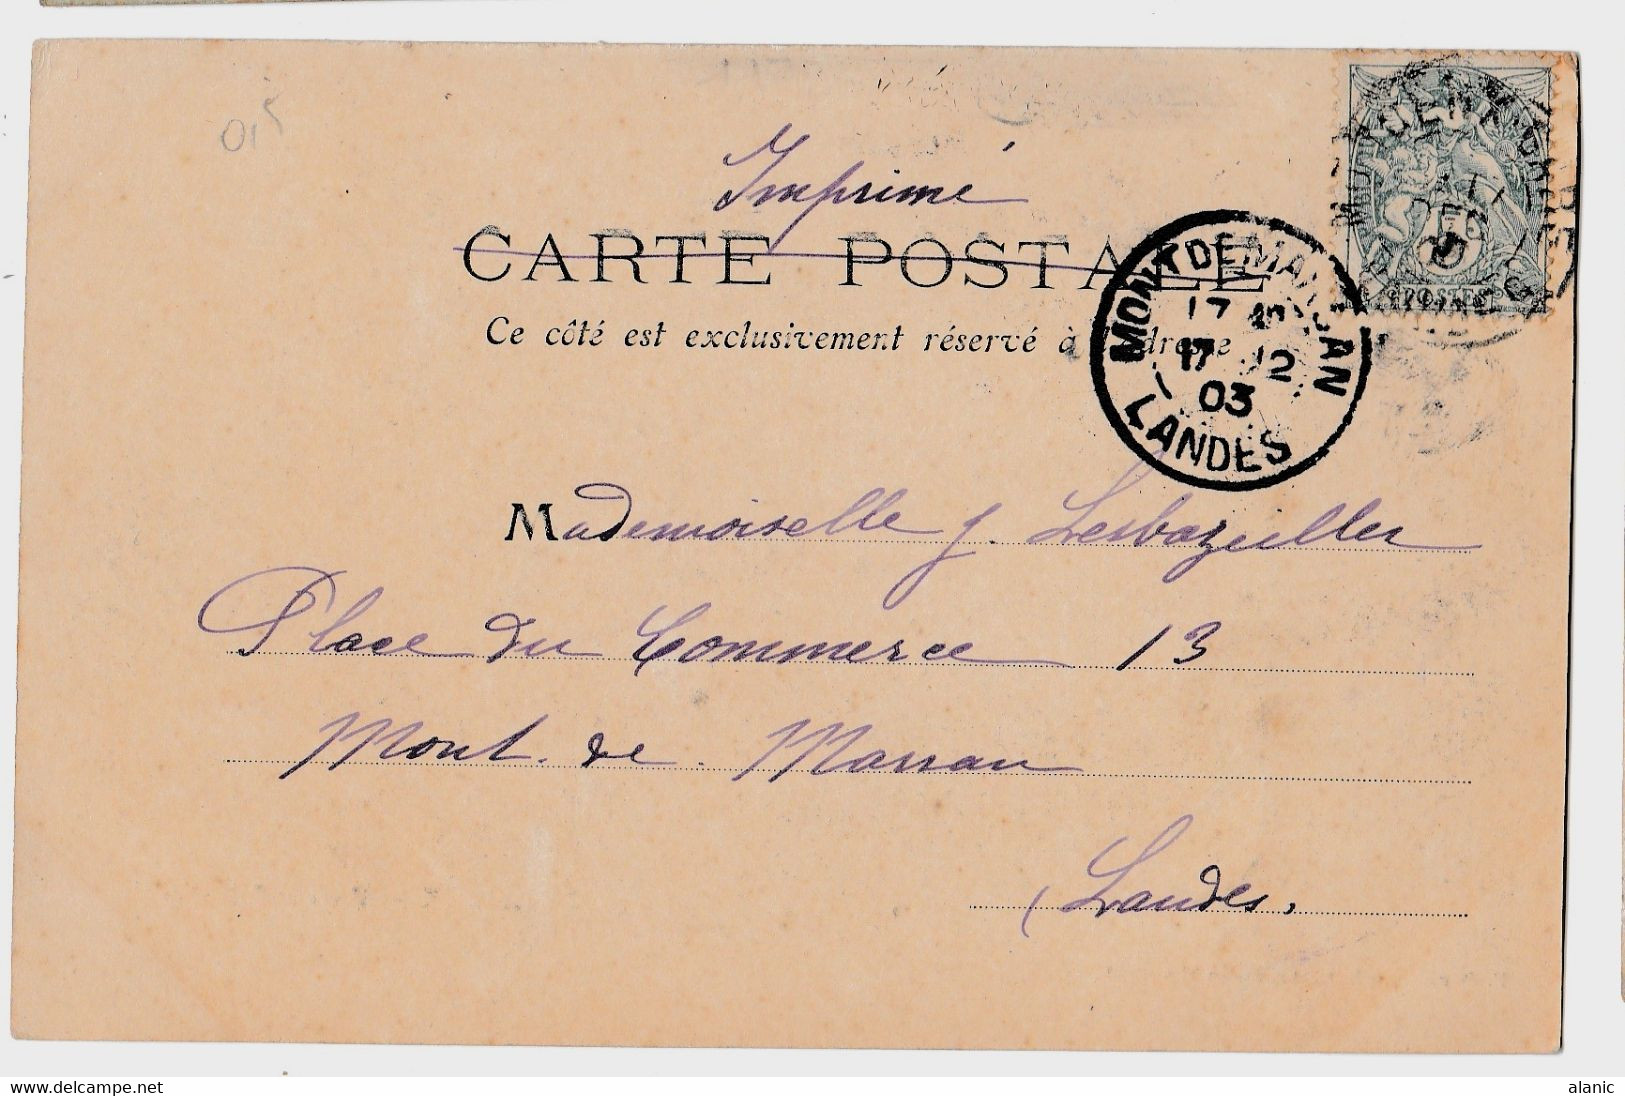 Imprimé
CARTE POSTALE
Ce côté est exclusivement réservé à l'adresse
MONT DE MARSAN
17 12
03
LANDES
POSTES
Mademoiselle J. Lesbazeilles
Place du Commerce 13
Mont. de. Marsan
(Landes,
delcampe.net
alanic